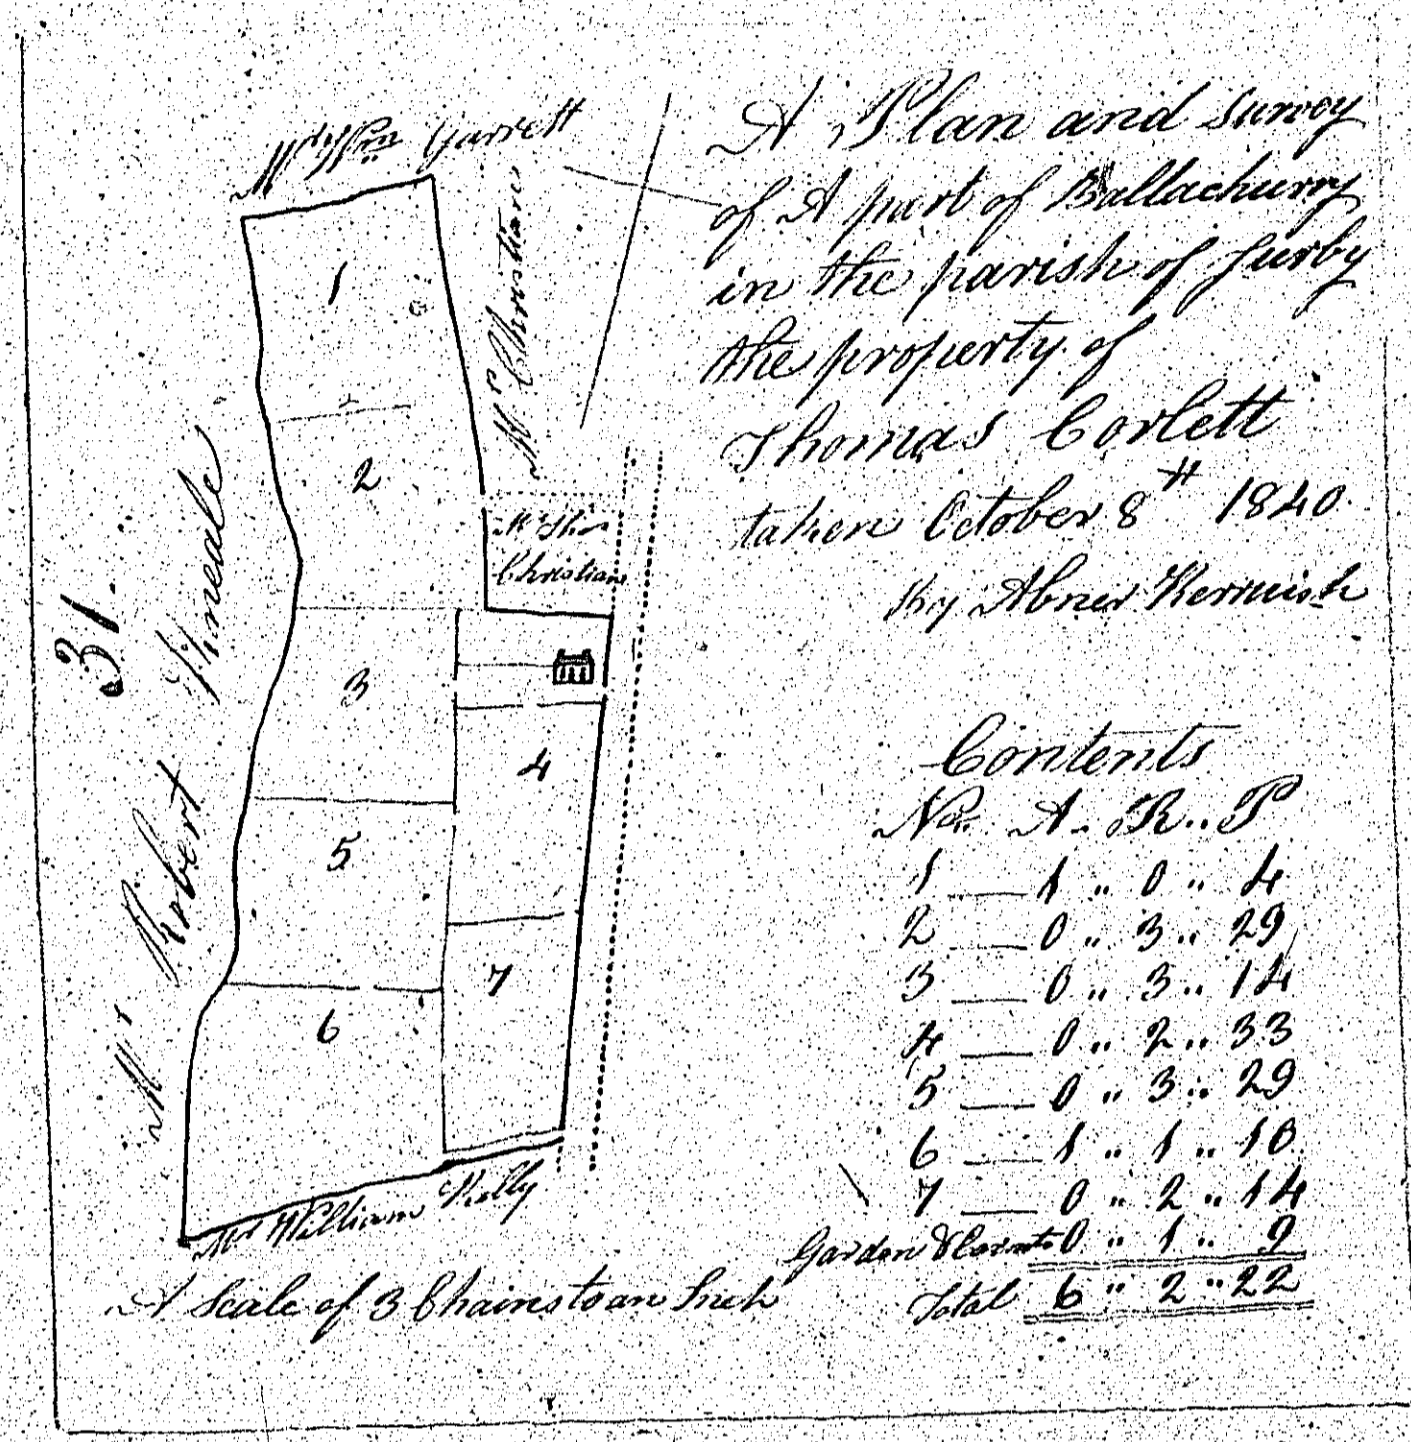 A Plan and Survey
of A part of Ballachurry
in the parish of Jurby
the property of
Thomas Corlett
taken October 8th 1840
By Abner Kerruish
Mr Wm Garrett
Mr Christian
Mr Thos
Christian
31
Mr Robert Kneale
1
2
3
4
5
6
7
Mr William Kelly
A Scale of 3 Chains to an Inch
Contents
Nos A .. R .. P
1 — 1 " 0 " 4
2 — 0 " 3 " 29
3 — 0 " 3 " 14
4 — 0 " 2 " 33
5 — 0 " 3 " 29
6 — 1 " 1 " 10
7 — 0 " 2 " 14
Garden & 0 " 1 " 9
Total 6 " 2 " 22